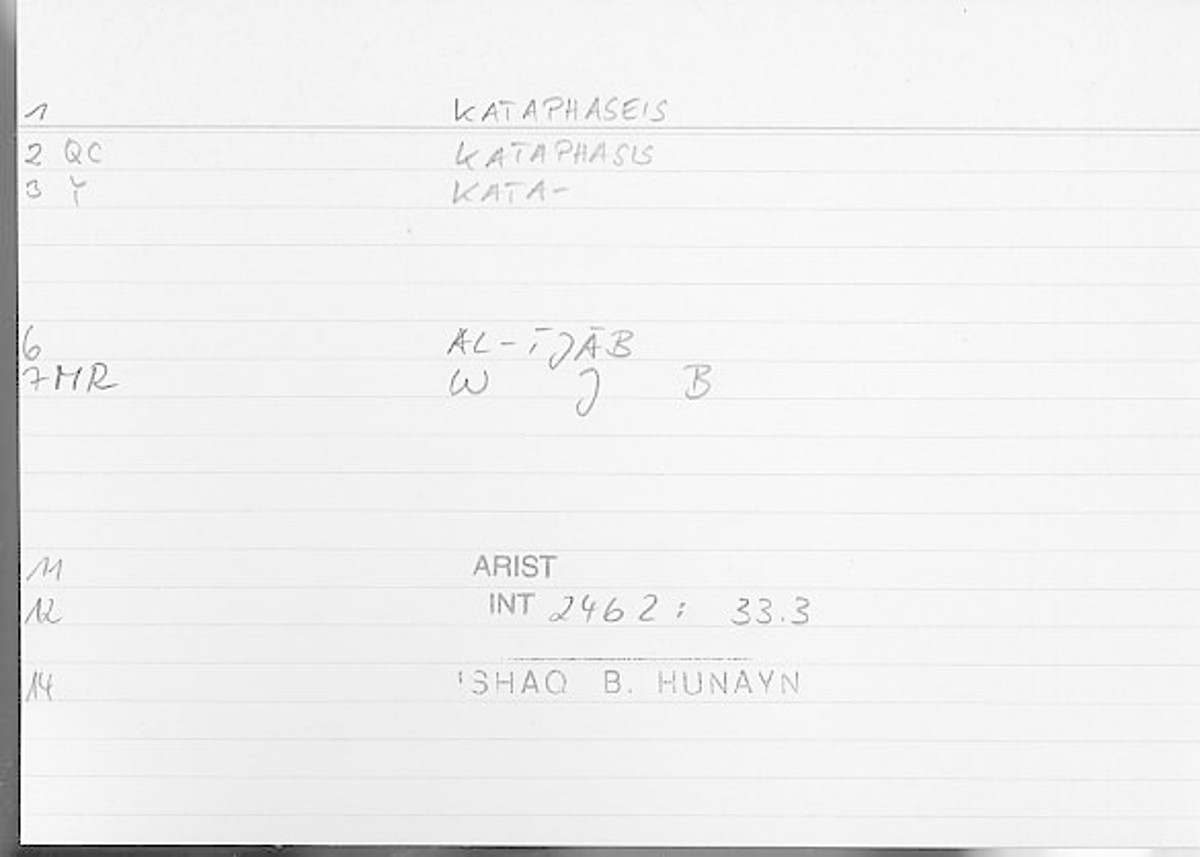 1 KATAPHASEIS
2 QC KATAPHASIS
3 Y KATA-
6 AL-ĪJĀB
7 MR W J B
11 ARIST
12 INT 24b2: 33.3
14 ISHAQ B. HUNAYN